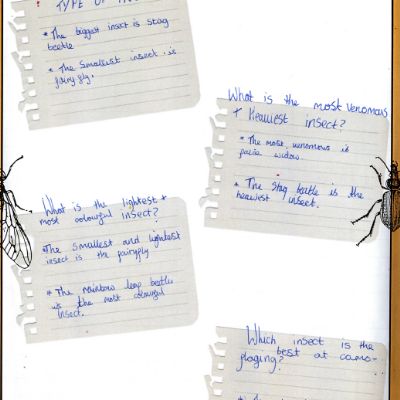 TYPE OF
* The biggest insect is stag
beetle
* The smallest insect is
fairy fly.
What is the most venomous
+ Heaviest insect?
* The most venomous is
widow
* The Stag beetle is the
heaviest insect.
What is the lightest +
most colourful insect?
*The smallest and lightest
insect is the fairyfly
* The rainbow leap beetle
is the most colourful
insect.
Which insect is the
best at camo-
flaging?